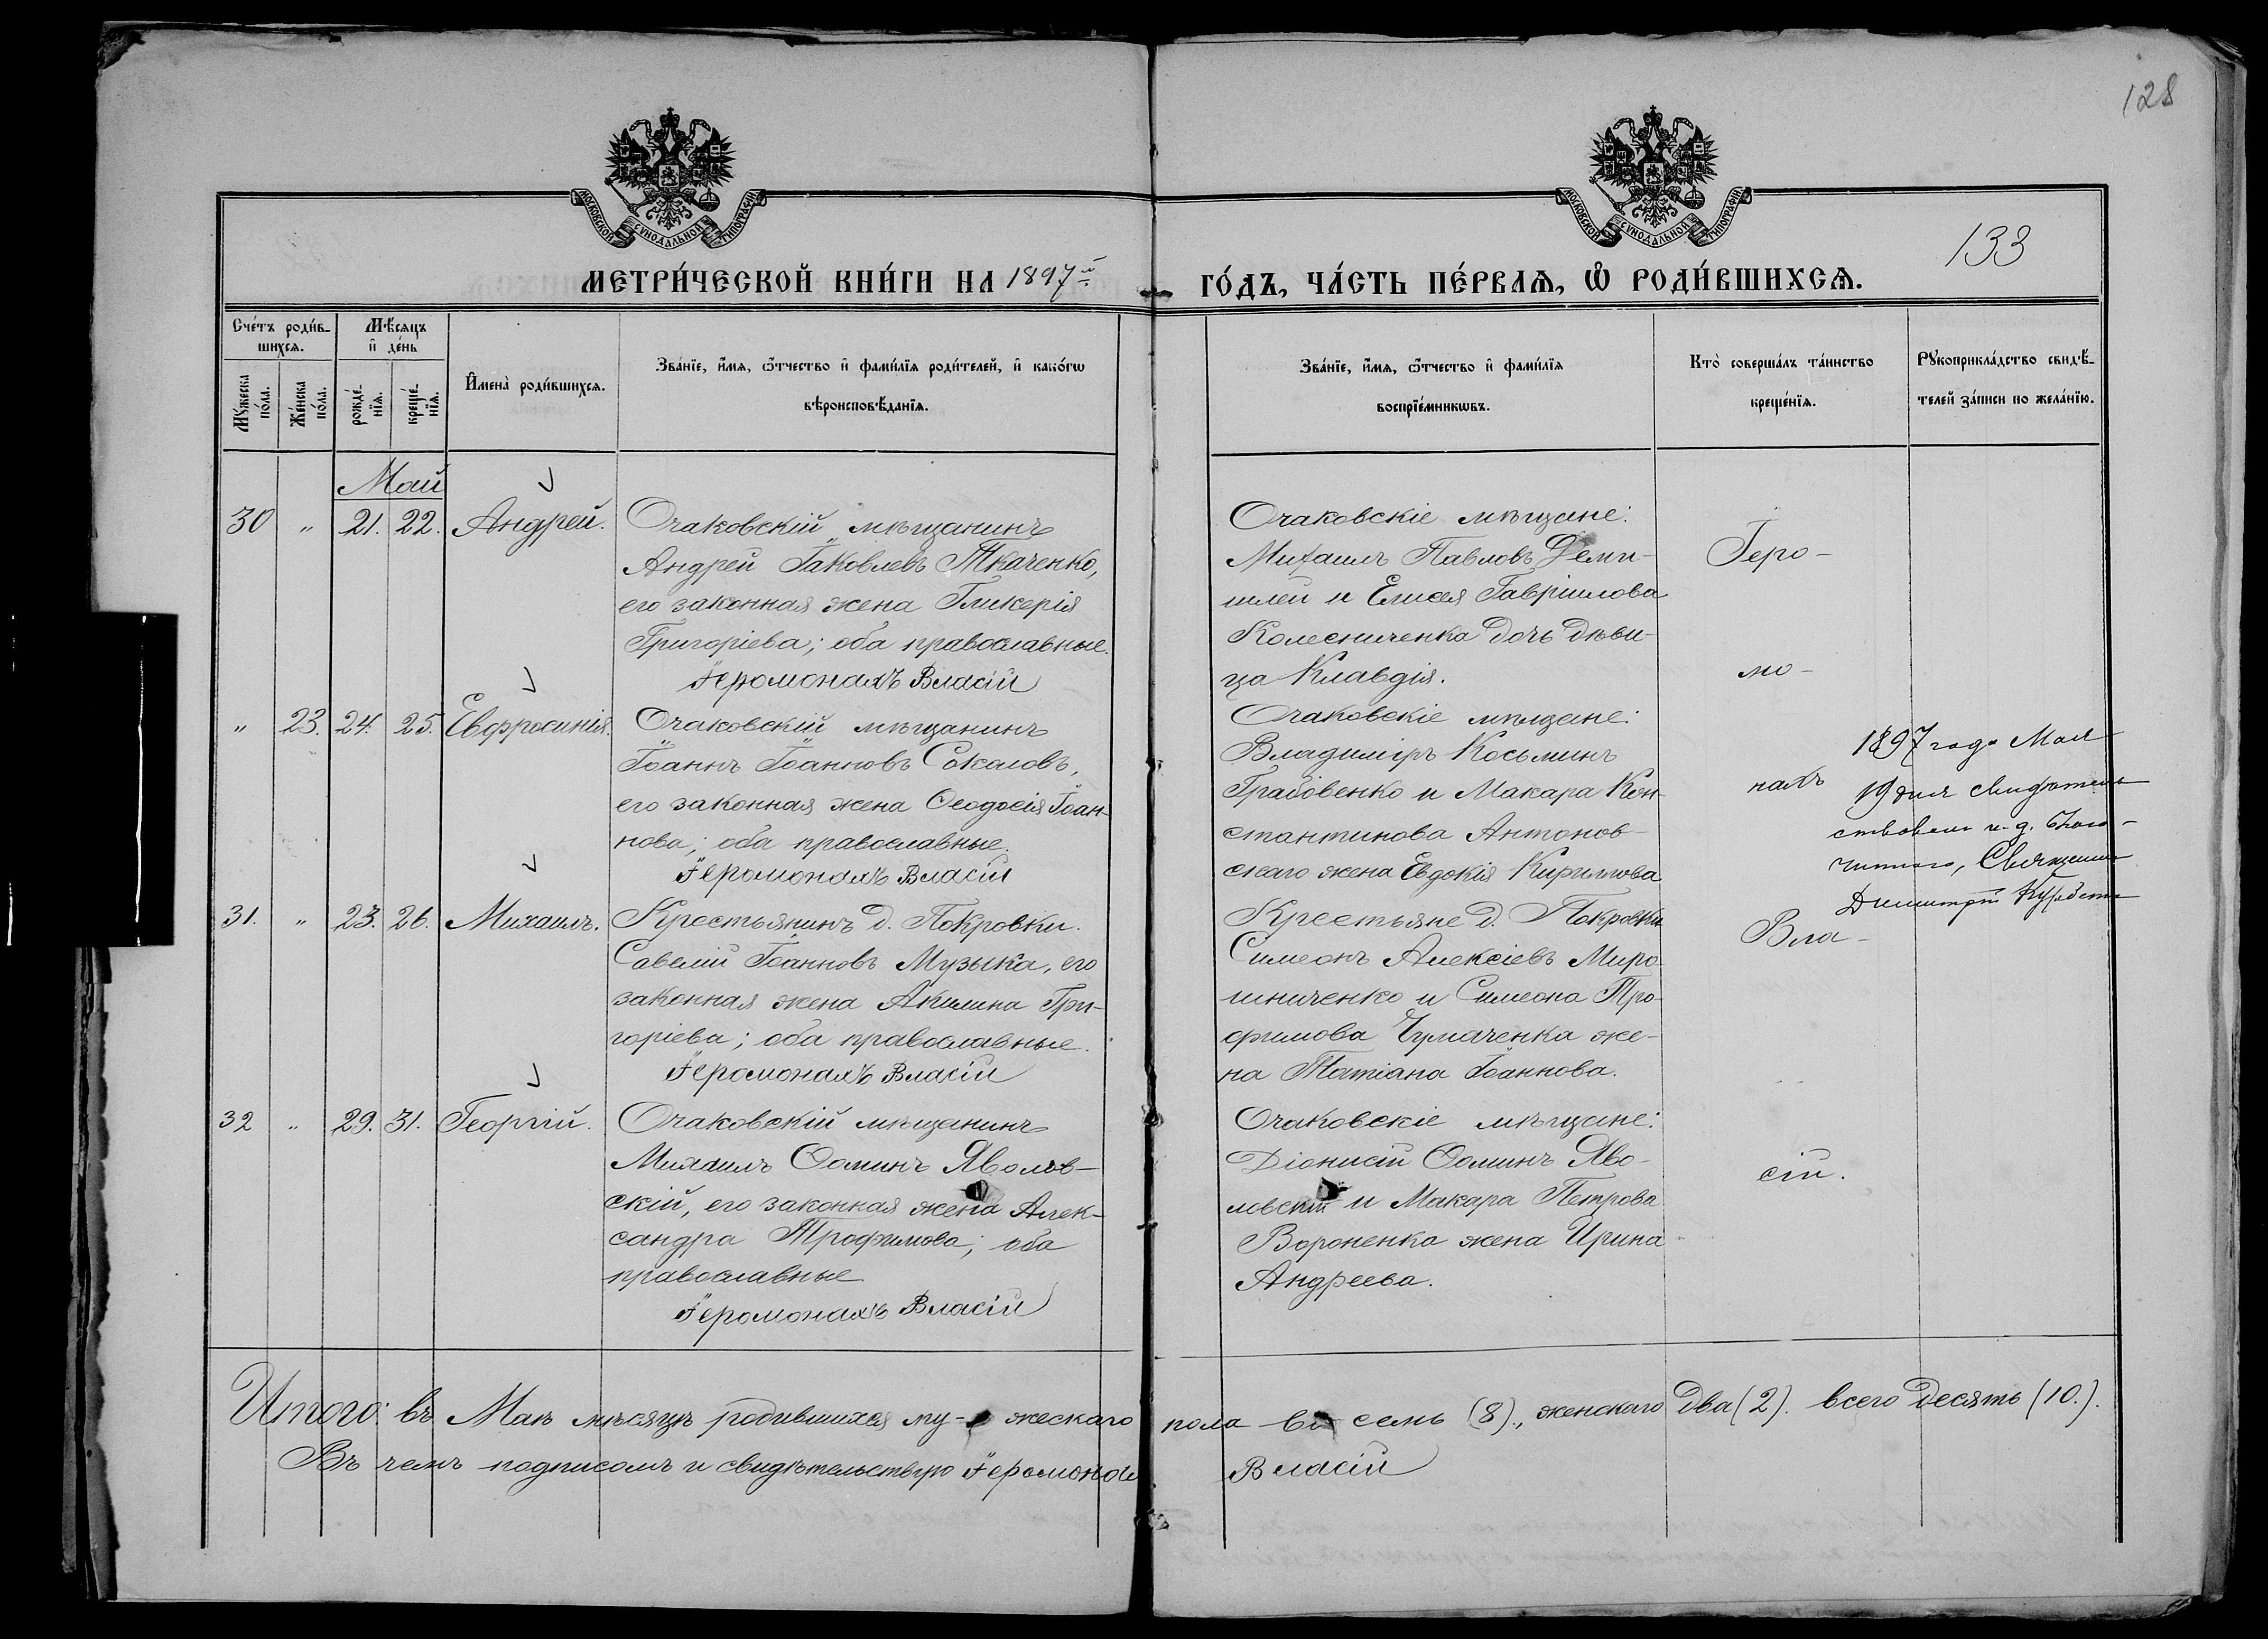 128
133
МОСКОВСКОЙ СѴНОДАЛЬНОЙ ТИПОГРАФІИ
МОСКОВСКОЙ СѴНОДАЛЬНОЙ ТИПОГРАФІИ
МЕТРИ́ЧЕСКОЙ КНИ́ГИ НА 1897й
ГО́ДЪ, ЧА́СТЬ ПЕ́РВАѦ, Ѡ҆ РОДИ́ВШИХСѦ.
Сче́тъ роди́в-
шихсѧ.
Мꙋ́жеска по́ла.
Же́нска по́ла.
Мѣ́сѧцъ
и҆ де́нь
рожде́-нїѧ.
креще́-нїѧ.
И҆мена̀ роди́вшихсѧ.
Зва́нїе, и҆́мѧ, ѻ҆́тчество и҆ фами́лїѧ роди́телей, и҆ како́гѡ
вѣроисповѣ́данїѧ.
Зва́нїе, и҆́мѧ, ѻ҆́тчество и҆ фами́лїѧ
воспрїе́мникѡвъ.
Кто̀ соверша́лъ та́инство
креще́нїѧ.
Рꙋкоприкла́дство свидѣ́-
телей за́писи по жела́нїю.
Май
30 " 21. 22. Андрей.
Очаковскій мѣщанинъ
Андрей Іаковлевъ Ткаченко,
его законная жена Гликерія
Григоріева; оба православные.
Іеромонахъ Власій
Очаковскіе мѣщане:
Михаилъ Павловъ Деми-
шлей и Елисея Гавріилова
Колесниченка дочь дѣви-
ца Клавдія.
Іеро-
мо-
" 23. 24. 25. Евфросинія.
Очаковскій мѣщанинъ
Іоаннъ Іоанновъ Соколовъ,
его законная жена Ѳеодосія Іоан-
нова; оба православные.
Іеромонахъ Власій
Очаковскіе мѣщане:
Владиміръ Косьминъ
Грабовенко и Макара Кон-
стантинова Антонов-
скаго жена Евдокія Кирилова
нахъ
1897 года Мая
19 дня свидѣтель
ствовалъ и. д. благо-
чиннаго, Священникъ
Димитрій
31. " 23. 26. Михаилъ.
Крестьянинъ д. Покровки.
Савелій Іоанновъ Музыка, его
законная жена Акилина Гри-
горіева; оба православные.
Іеромонахъ Власій
Крестьяне д. Покровки
Симеонъ Алексіевъ Миро-
шниченко и Симеона Тро-
фимова Чумаченка же-
на Татіана Іоаннова.
Вла-
32 " 29. 31. Георгій.
Очаковскій мѣщанинъ
Михаилъ Ѳоминъ Яволов-
скій, его законная жена Алек-
сандра Трофимова; оба
православные
Іеромонахъ Власій
Очаковскіе мѣщане:
Діонисій Ѳоминъ Яво-
ловскій и Макара Петрова
Вороненка жена Ирина
Андреева.
сій.
Итого: въ Маѣ мѣсяцѣ родившихся му- жескаго пола восемь (8)., женскаго два (2). всего десять (10.).
Въ чемъ подписомъ и свидѣтельствую Іеромонахъ Власій